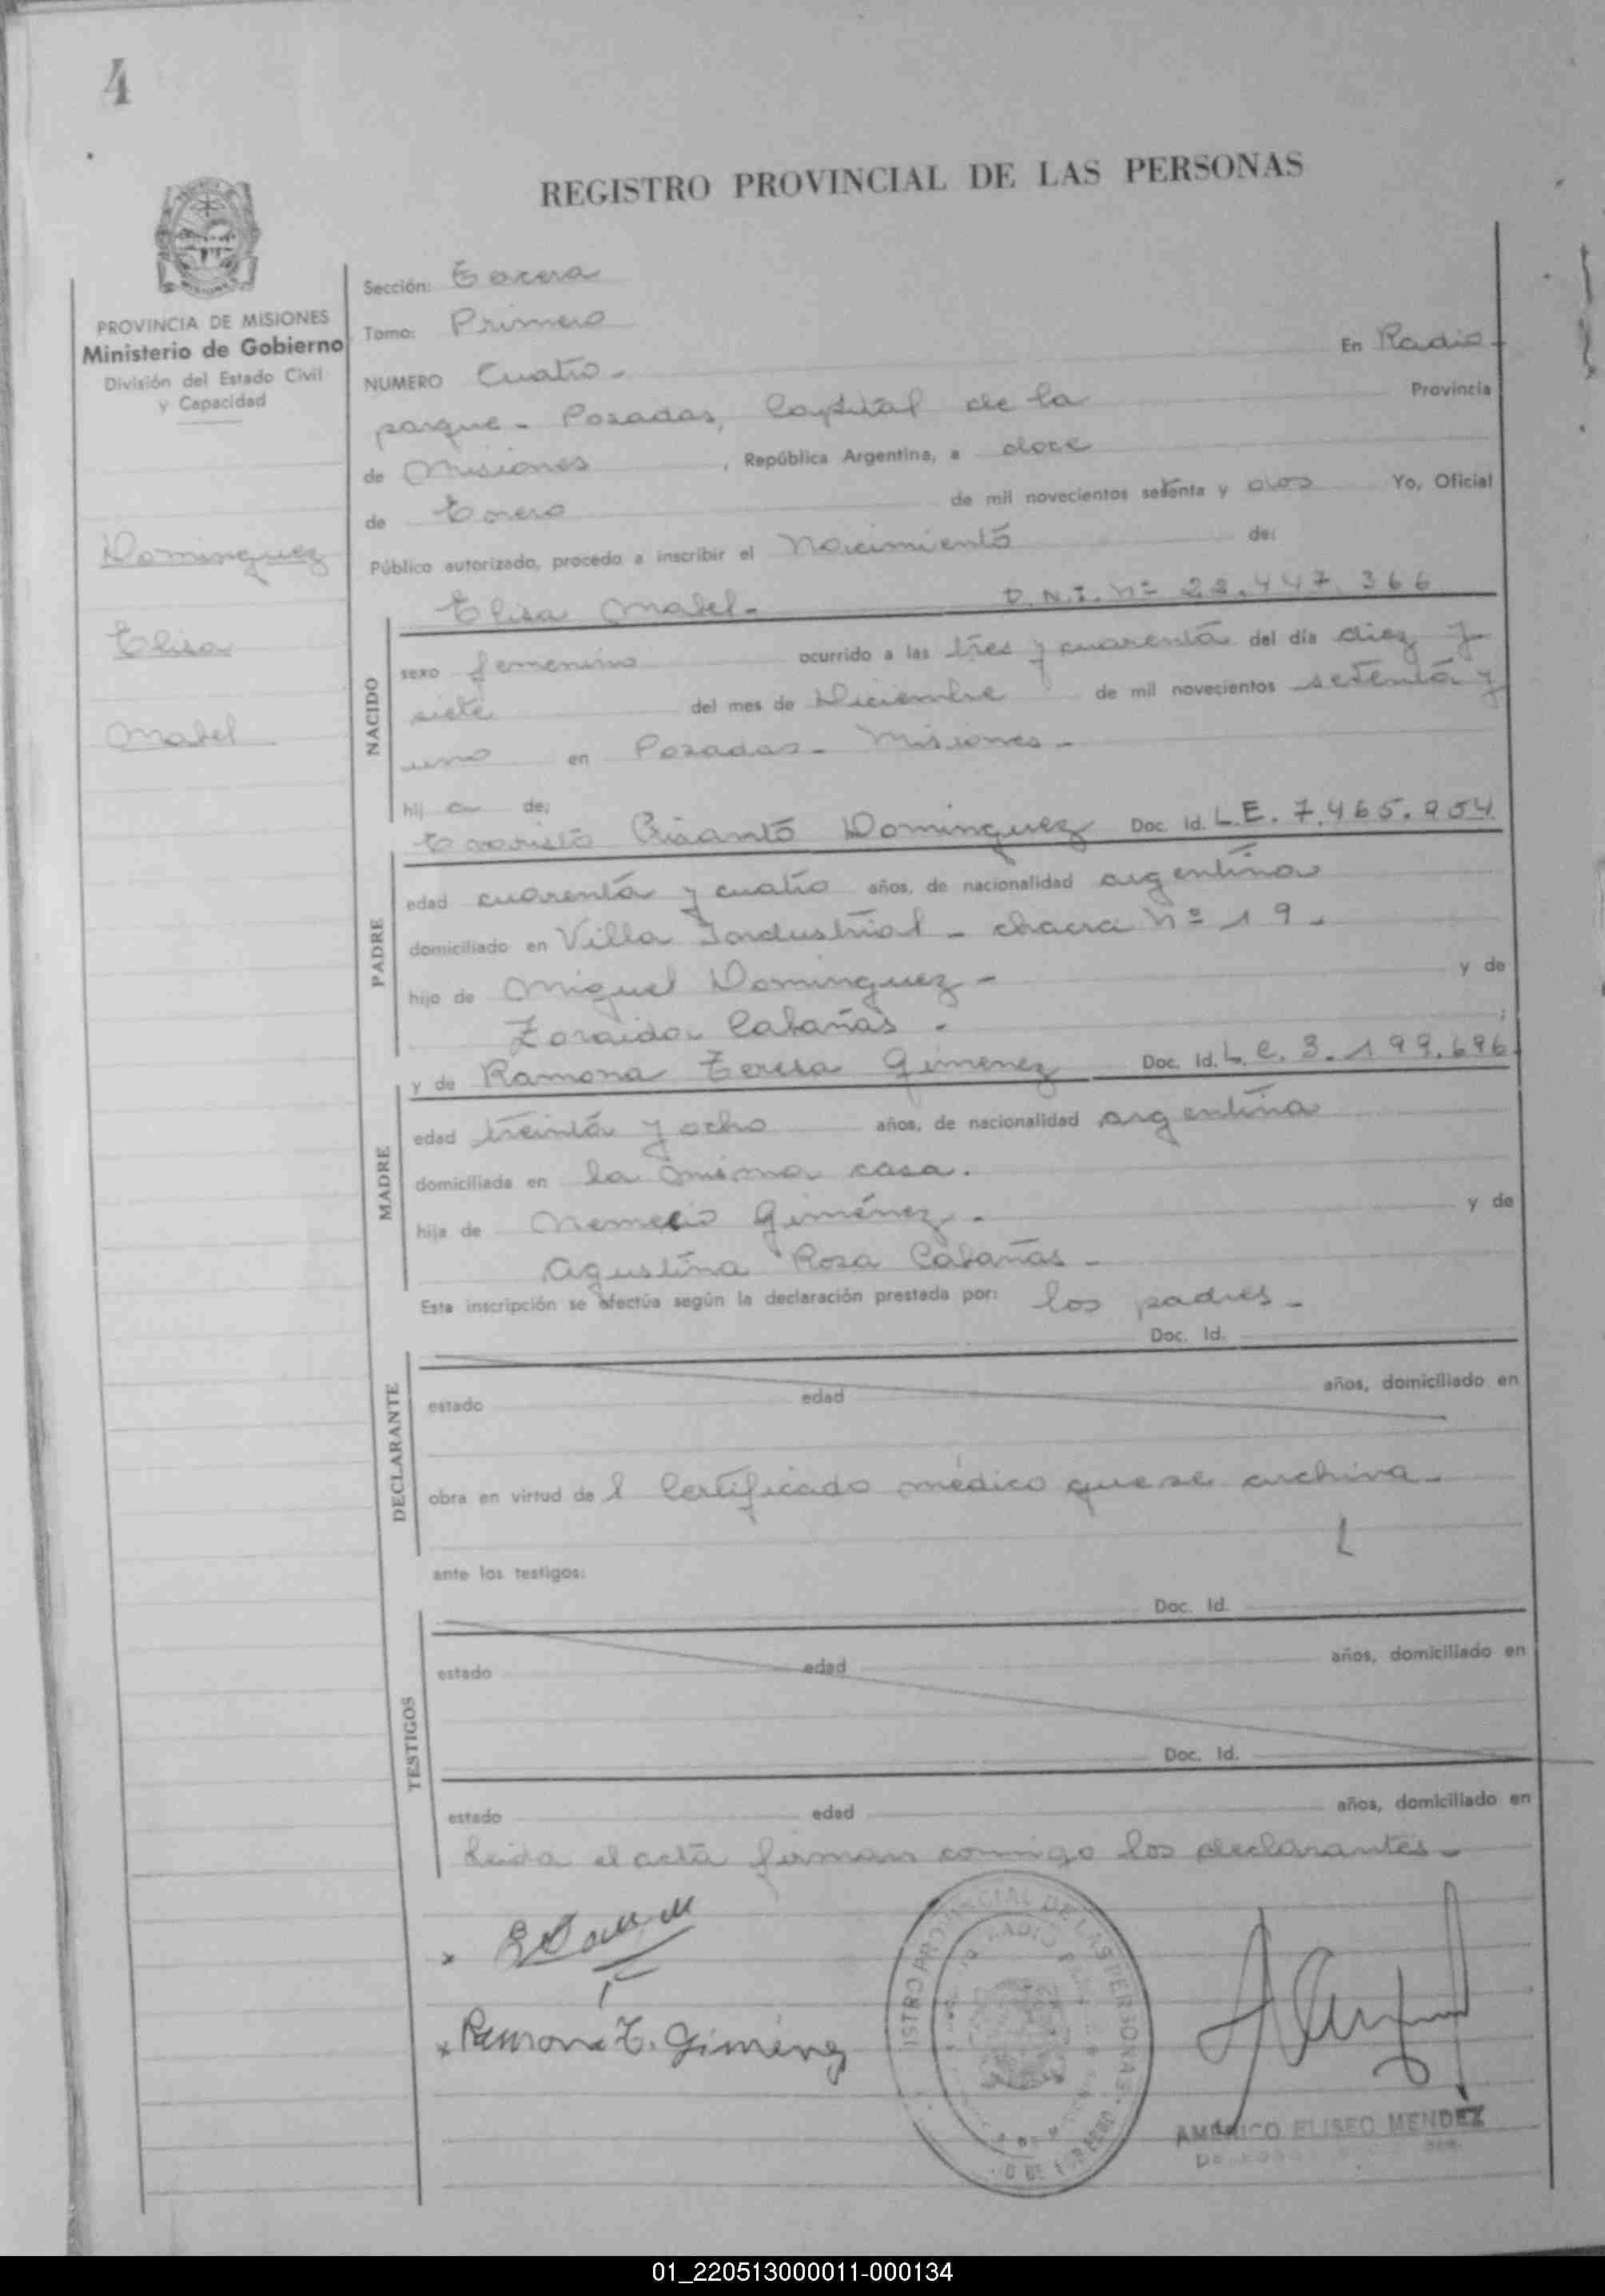 4
REGISTRO PROVINCIAL DE LAS PERSONAS
PROVINCIA DE MISIONES
Ministerio de Gobierno
División del Estado Civil
y Capacidad
Dominguez
Elisa
Mabel
Sección: Tercera
Tomo: Primero
NUMERO Cuatro- En Radio
parque- Posadas, Capital de la Provincia
de Misiones, República Argentina, a doce
de Enero de mil novecientos setenta y dos Yo, Oficial
Público autorizado, procedo a inscribir el Nacimiento de:
Elisa Mabel- D.N.I. Nº 22.447.366
NACIDO
sexo femenino ocurrido a las tres y cuarenta del día diez y
siete del mes de Diciembre de mil novecientos setenta y
uno en Posadas- Misiones-
hij a de:
Evaristo Crisanto Dominguez Doc. Id. L.E. 7.465.954
PADRE
edad cuarenta y cuatro años, de nacionalidad argentina
domiciliado en Villa Industrial - chacra Nº 19.
hijo de Miguel Dominguez- y de
Zoraida Cabañas-
y de Ramona Teresa Gimenez Doc. Id. L.C. 3.199.696
MADRE
edad treinta y ocho años, de nacionalidad argentina
domiciliada en la misma casa.
hija de Nemecio Giménez- y de
Agustina Rosa Cabañas-
Esta inscripción se efectúa según la declaración prestada por: los padres-
Doc. Id.
DECLARANTE
estado edad años, domiciliado en
obra en virtud de l Certificado médico que se archiva-
ante los testigos:
Doc. Id.
TESTIGOS
estado edad años, domiciliado en
Doc. Id.
estado edad años, domiciliado en
Leida el acta firman conmigo los declarantes-
x
x Ramona T. Giménez
ISTRO PROVINCIAL DE LAS PERSONAS
AMERICO ELISEO MENDEZ
01_220513000011-000134